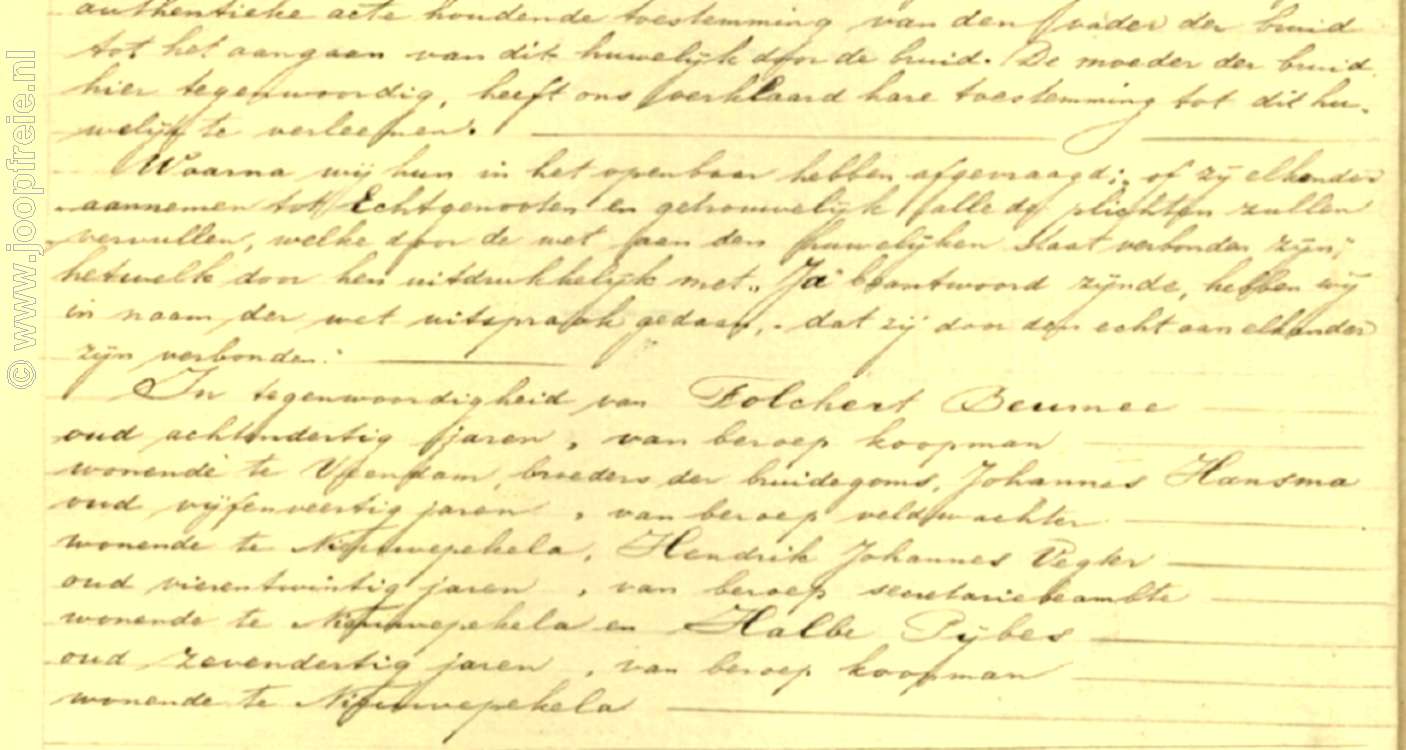 authentieke acte houdende toestemming van den vader der bruid
tot het aangaan van dit huwelijk door de bruid. De moeder der bruid
hier tegenwoordig, heeft ons verklaard hare toestemming tot dit hu-
welijk te verleenen.
Waarna wij hun in het openbaar hebben afgevraagd; of zij elkander
aannemen tot Echtgenooten en getrouwelijk alle de plichten zullen
vervullen, welke door de wet aan den huwelijken staat verbonden zijn;
hetwelk door hen uitdrukkelijk met "Ja" beantwoord zijnde, hebben wij
in naam der wet uitspraak gedaan, dat zij door den echt aan elkander
zijn verbonden.
In tegenwoordigheid van Folchert Beumee
oud achtendertig jaren, van beroep koopman
wonende te Veendam, broeders der bruidegoms, Johannes Hansma
oud vijfenveertig jaren, van beroep veldwachter
wonende te Nieuwepekela, Hendrik Johannes Vegter
oud vierentwintig jaren, van beroep secretariebeambte
wonende te Nieuwepekela en Halbe Pijbes
oud zevendertig jaren, van beroep koopman
wonende te Nieuwepekela
© www.joopfreie.nl